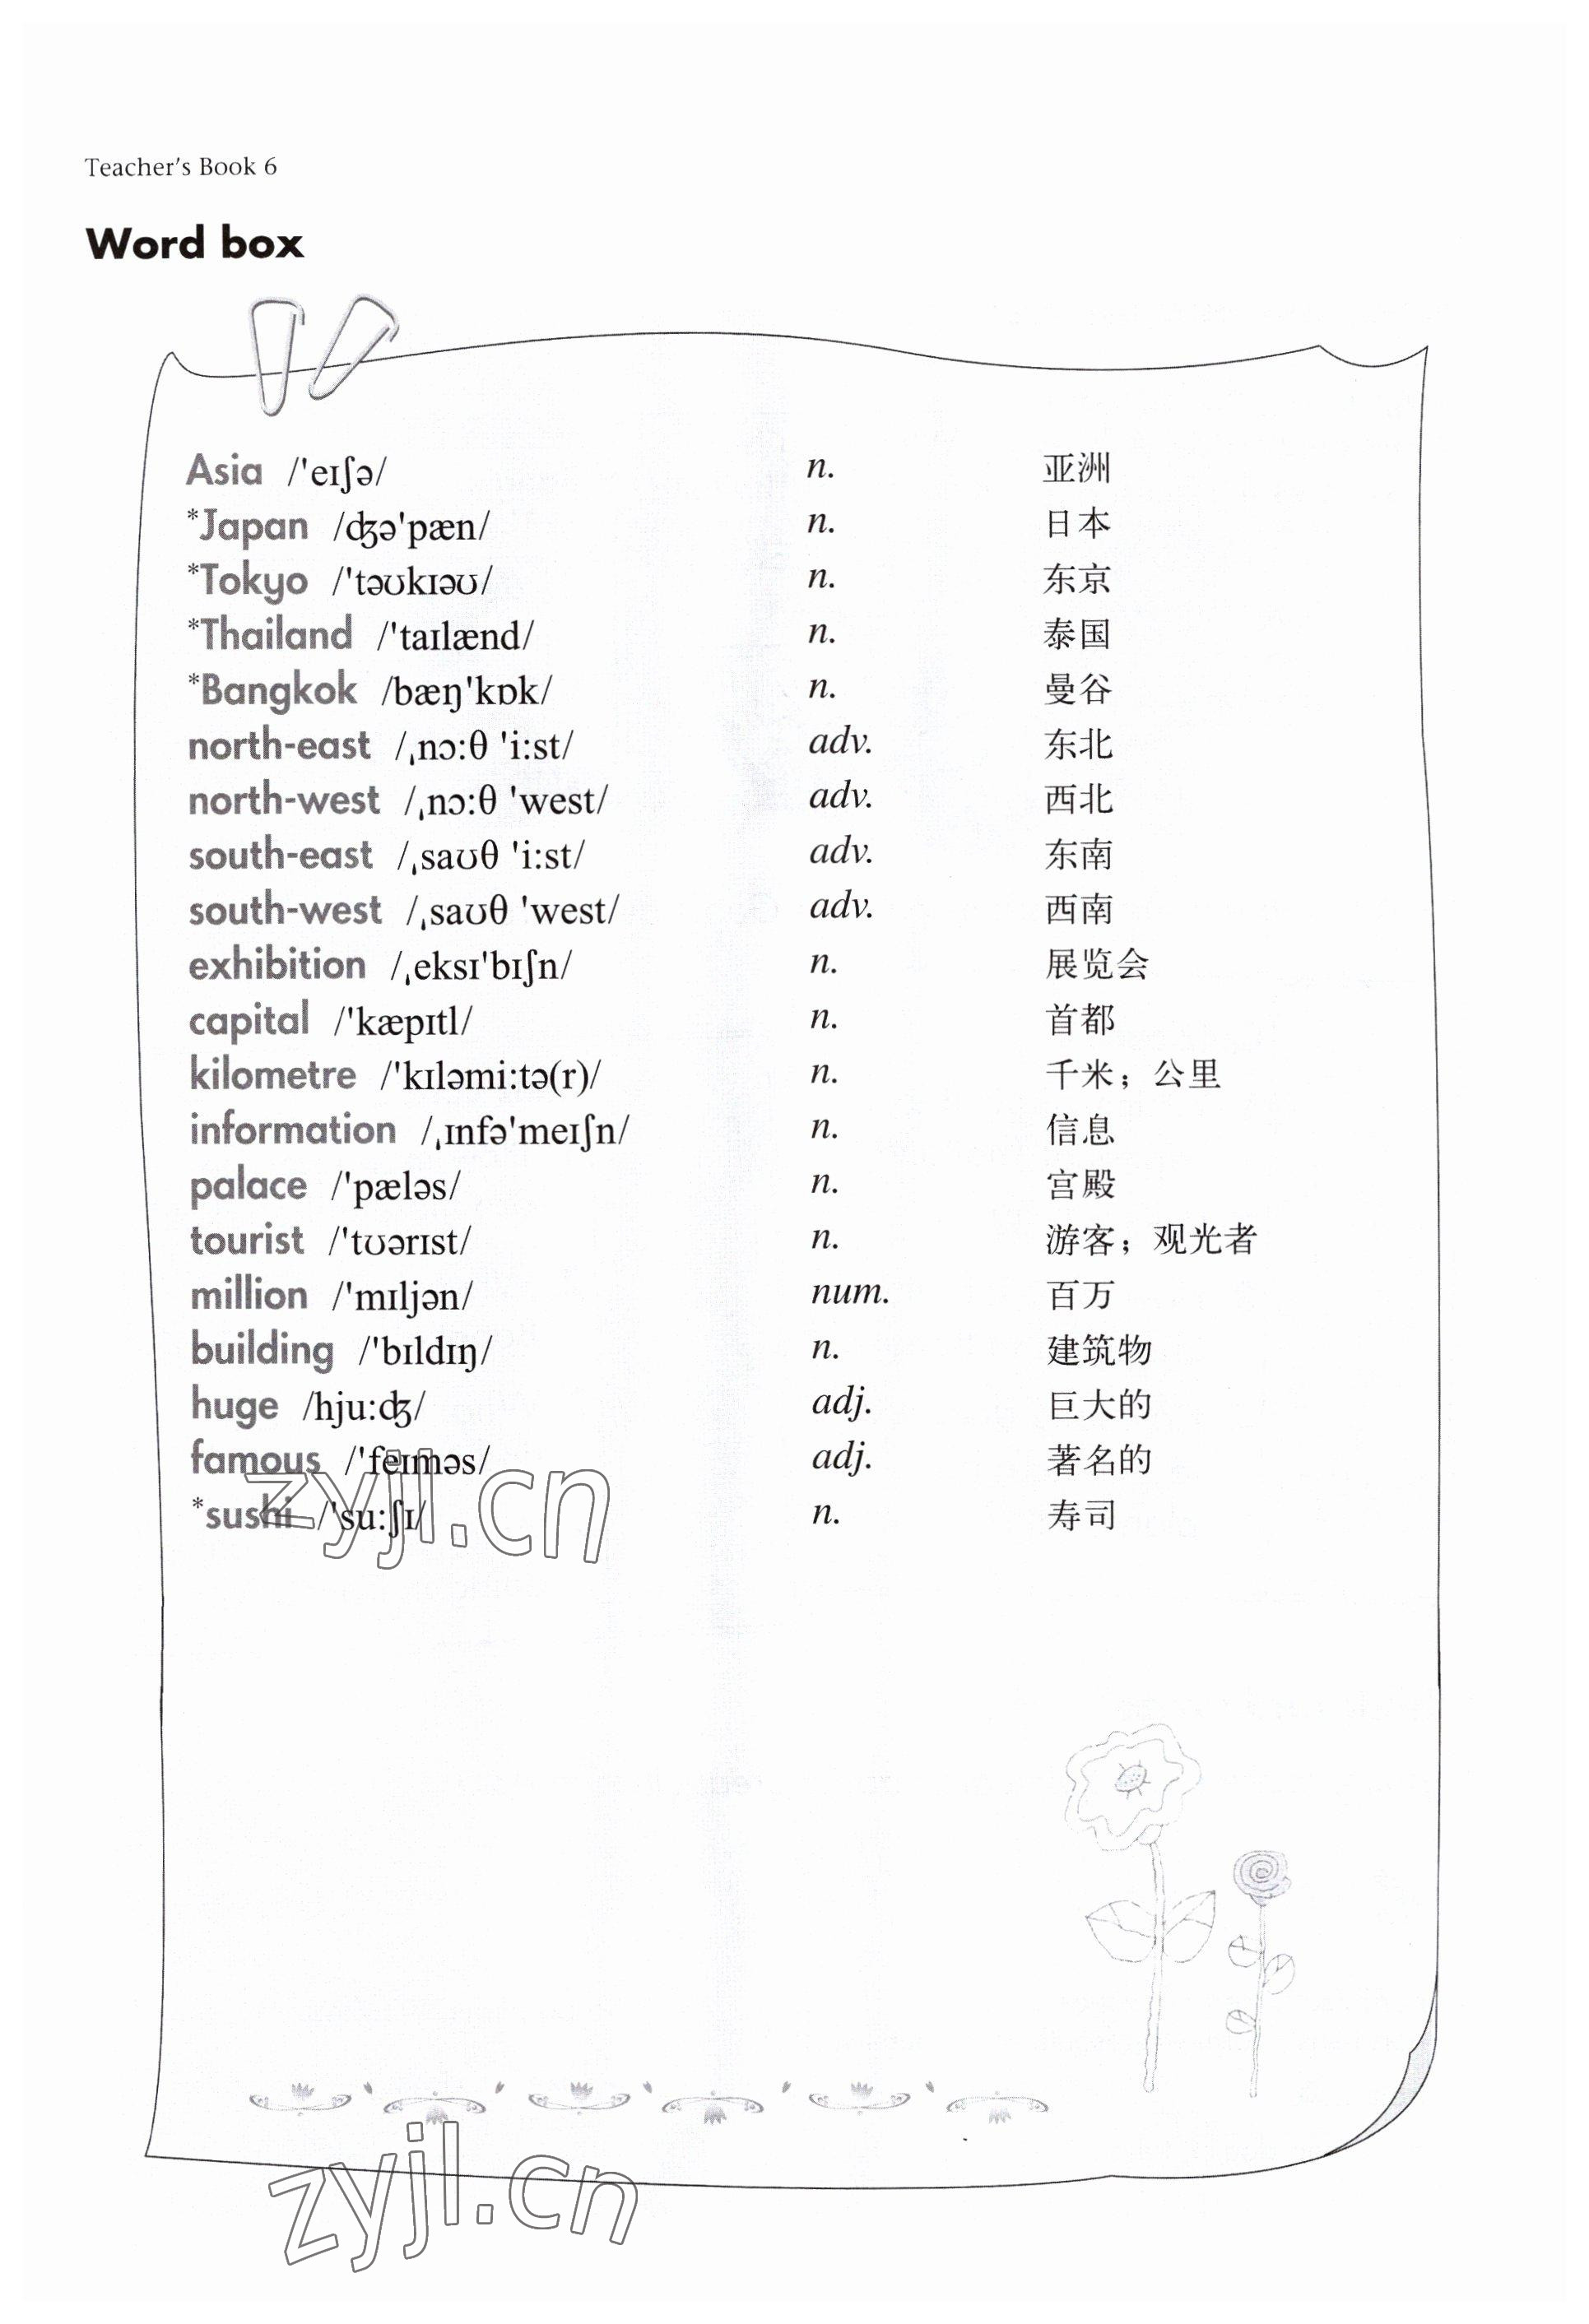 Teacher's Book 6
Word box
Asia /ˈeɪʃə/ n. 亚洲
*Japan /ʤəˈpæn/ n. 日本
*Tokyo /ˈtəʊkɪəʊ/ n. 东京
*Thailand /ˈtaɪlænd/ n. 泰国
*Bangkok /bæŋˈkɒk/ n. 曼谷
north-east /ˌnɔ:θ ˈi:st/ adv. 东北
north-west /ˌnɔ:θ ˈwest/ adv. 西北
south-east /ˌsaʊθ ˈi:st/ adv. 东南
south-west /ˌsaʊθ ˈwest/ adv. 西南
exhibition /ˌeksɪˈbɪʃn/ n. 展览会
capital /ˈkæpɪtl/ n. 首都
kilometre /ˈkɪləmi:tə(r)/ n. 千米；公里
information /ˌɪnfəˈmeɪʃn/ n. 信息
palace /ˈpæləs/ n. 宫殿
tourist /ˈtʊərɪst/ n. 游客；观光者
million /ˈmɪljən/ num. 百万
building /ˈbɪldɪŋ/ n. 建筑物
huge /hju:ʤ/ adj. 巨大的
famous /ˈfeɪməs/ adj. 著名的
*sushi /ˈsu:ʃɪ/ n. 寿司
zyjl.cn
zyjl.cn